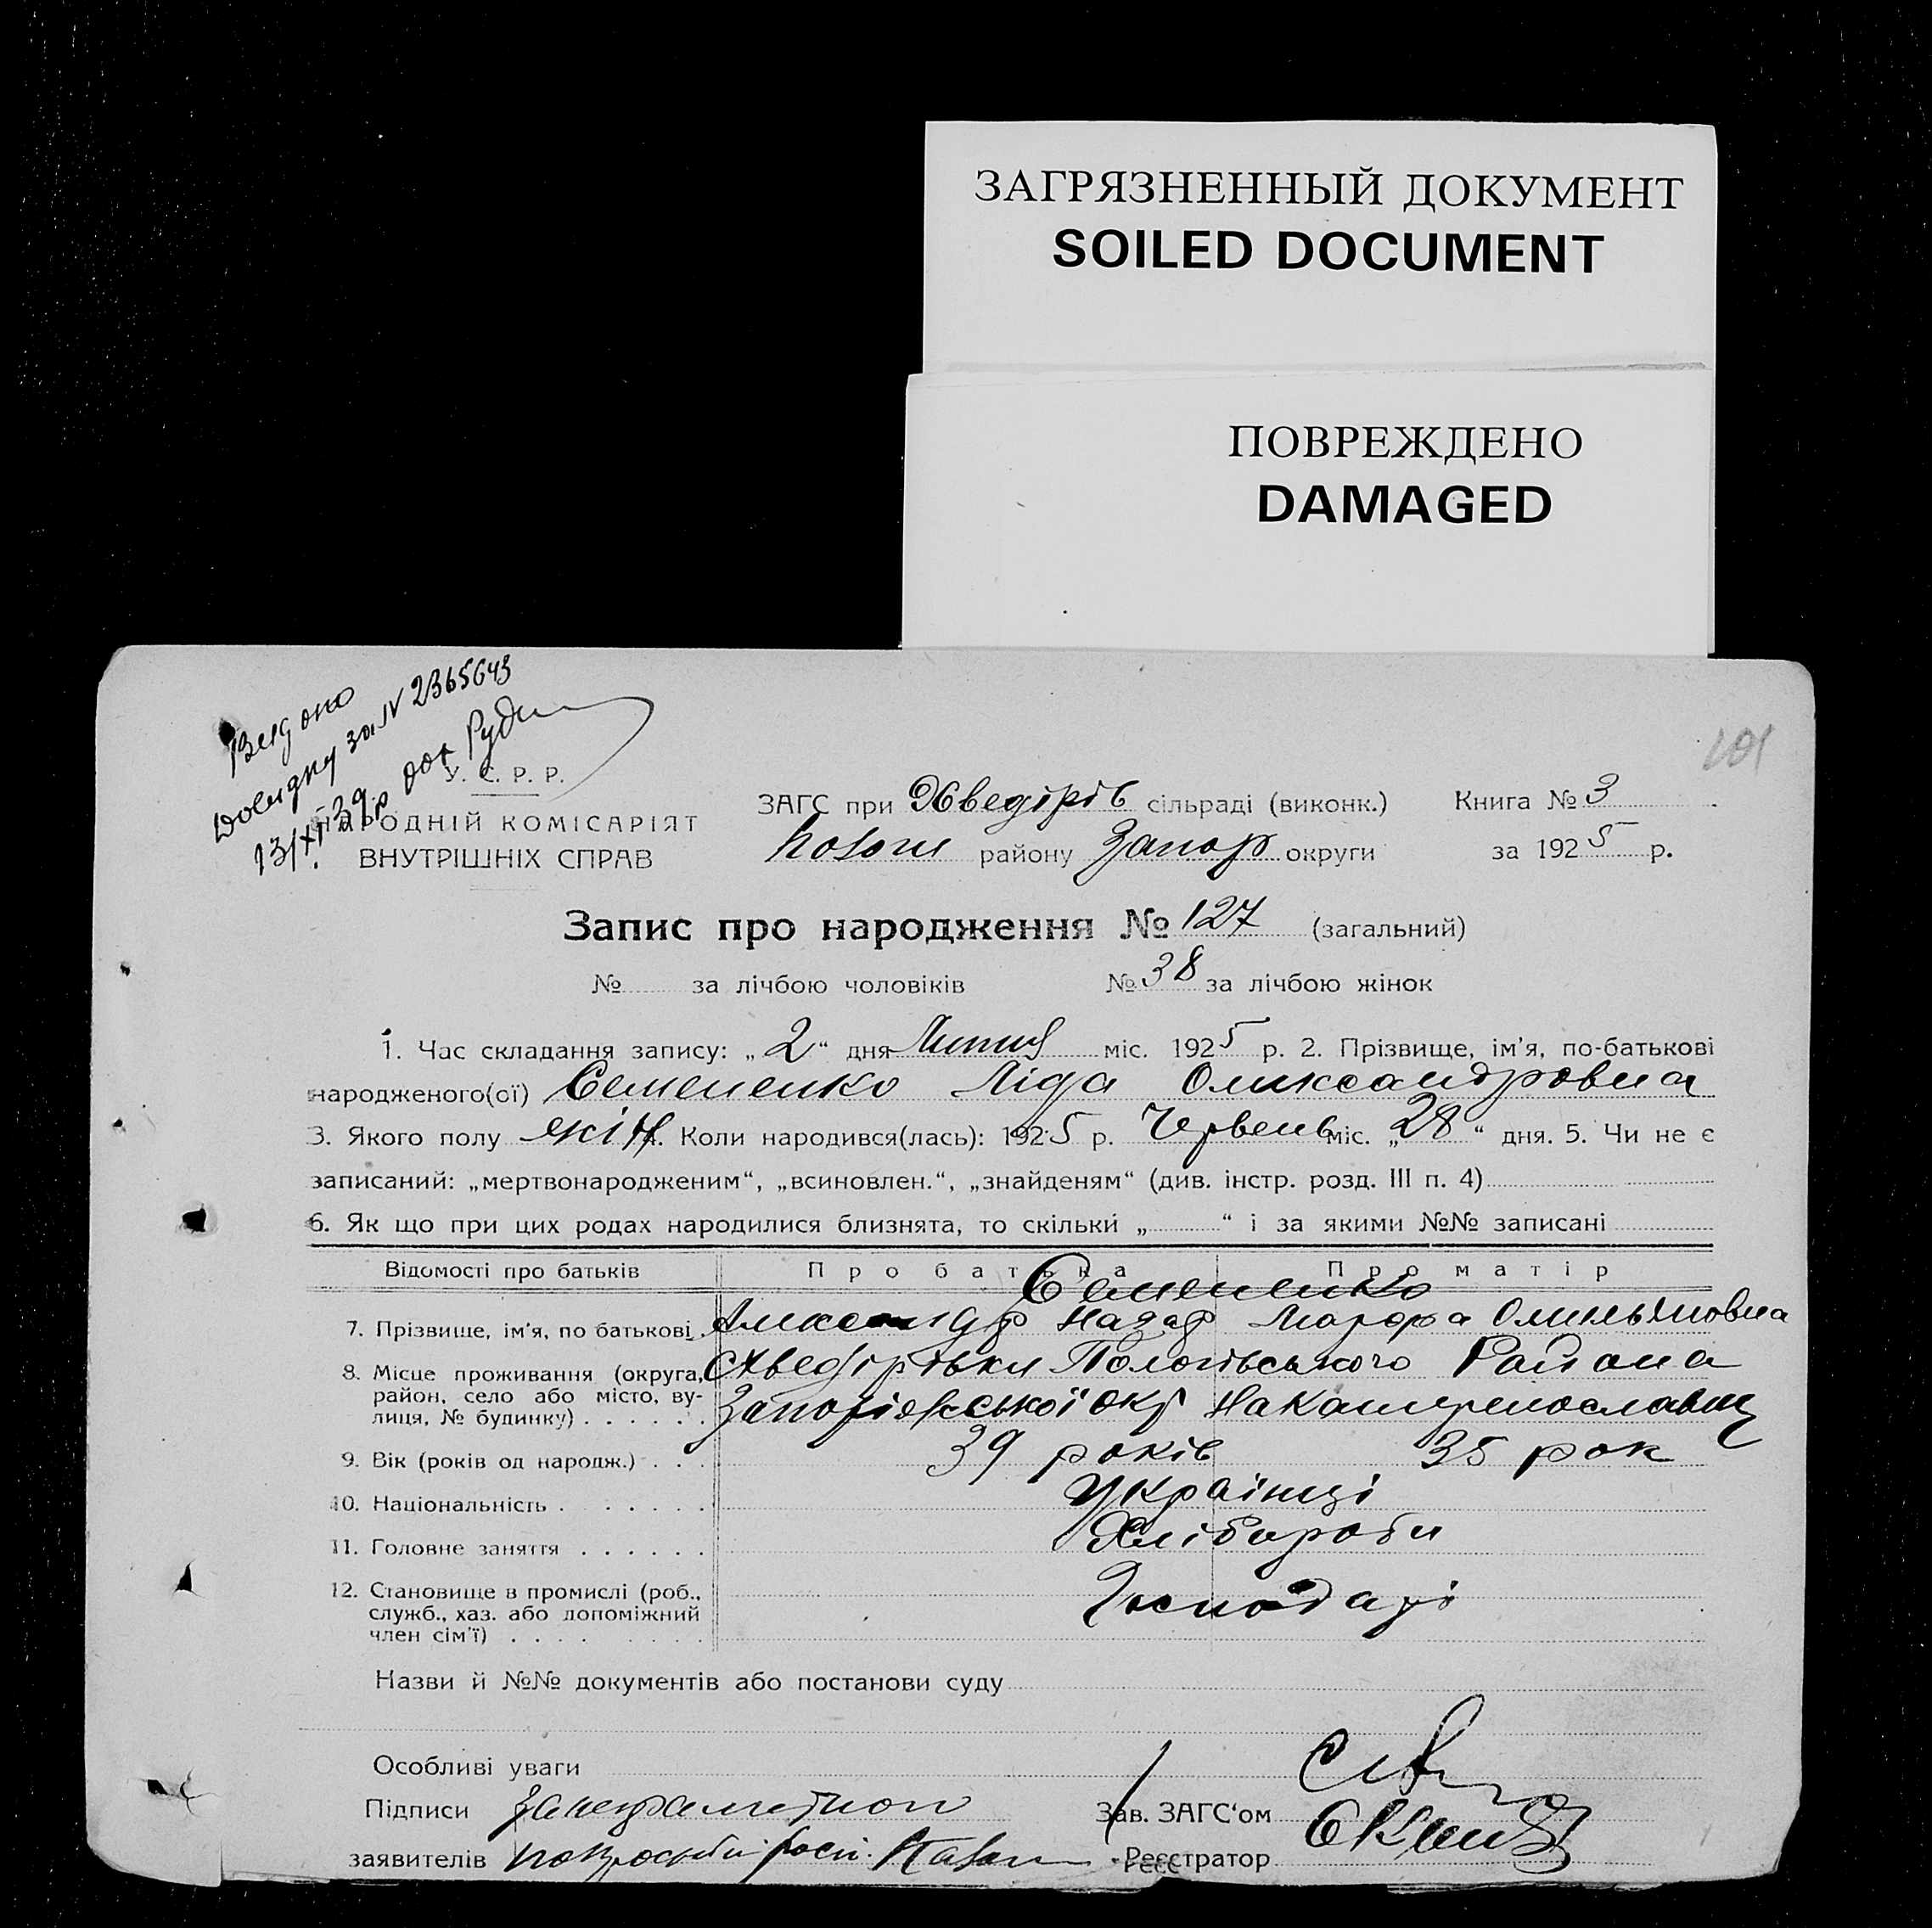 ЗАГРЯЗНЕННЫЙ ДОКУМЕНТ
SOILED DOCUMENT
ПОВРЕЖДЕНО
DAMAGED
Видано
за N 2365643
13/XI-39р.
101
У. С. Р. Р.
НАРОДНІЙ КОМІСАРІЯТ
ВНУТРІШНІХ СПРАВ
ЗАГС при сільраді (виконк.) Книга № 3
району Запор округи за 1925 р.
Запис про народження № 127 (загальний)
№ за лічбою чоловіків № 38 за лічбою жінок
1. Час складання запису: „2“ дня Липня міс. 1925 р. 2. Прізвище, ім’я, по-батькові
народженого(ої) Семененко Ліда Оликсандровна
3. Якого полу жін 4. Коли народився(лась): 1925 р. Червень міс. „28“ дня. 5. Чи не є
записаний: „мертвонародженим“, „всиновлен.“, „знайденям“ (див. інстр. розд. III п. 4)
6. Як що при цих родах народилися близнята, то скільки „ “ і за якими №№ записані
Відомості про батьків Про батька Про матір
Семененко
7. Прізвище, ім’я, по батькові Марфа
8. Місце проживання (округа, Пологівського Района
район, село або місто, ву- Запоріжської окр
лиця, № будинку)
9. Вік (років од народж.) 39 років 35 рок
10. Національність Українці
11. Головне заняття Хлібороби
12. Становище в промислі (роб., Господарі
служб., хаз. або допоміжний
член сім’ї)
Назви й №№ документів або постанови суду
Особливі уваги
Підписи Зав. ЗАГС‘ом
заявителів Реєстратор